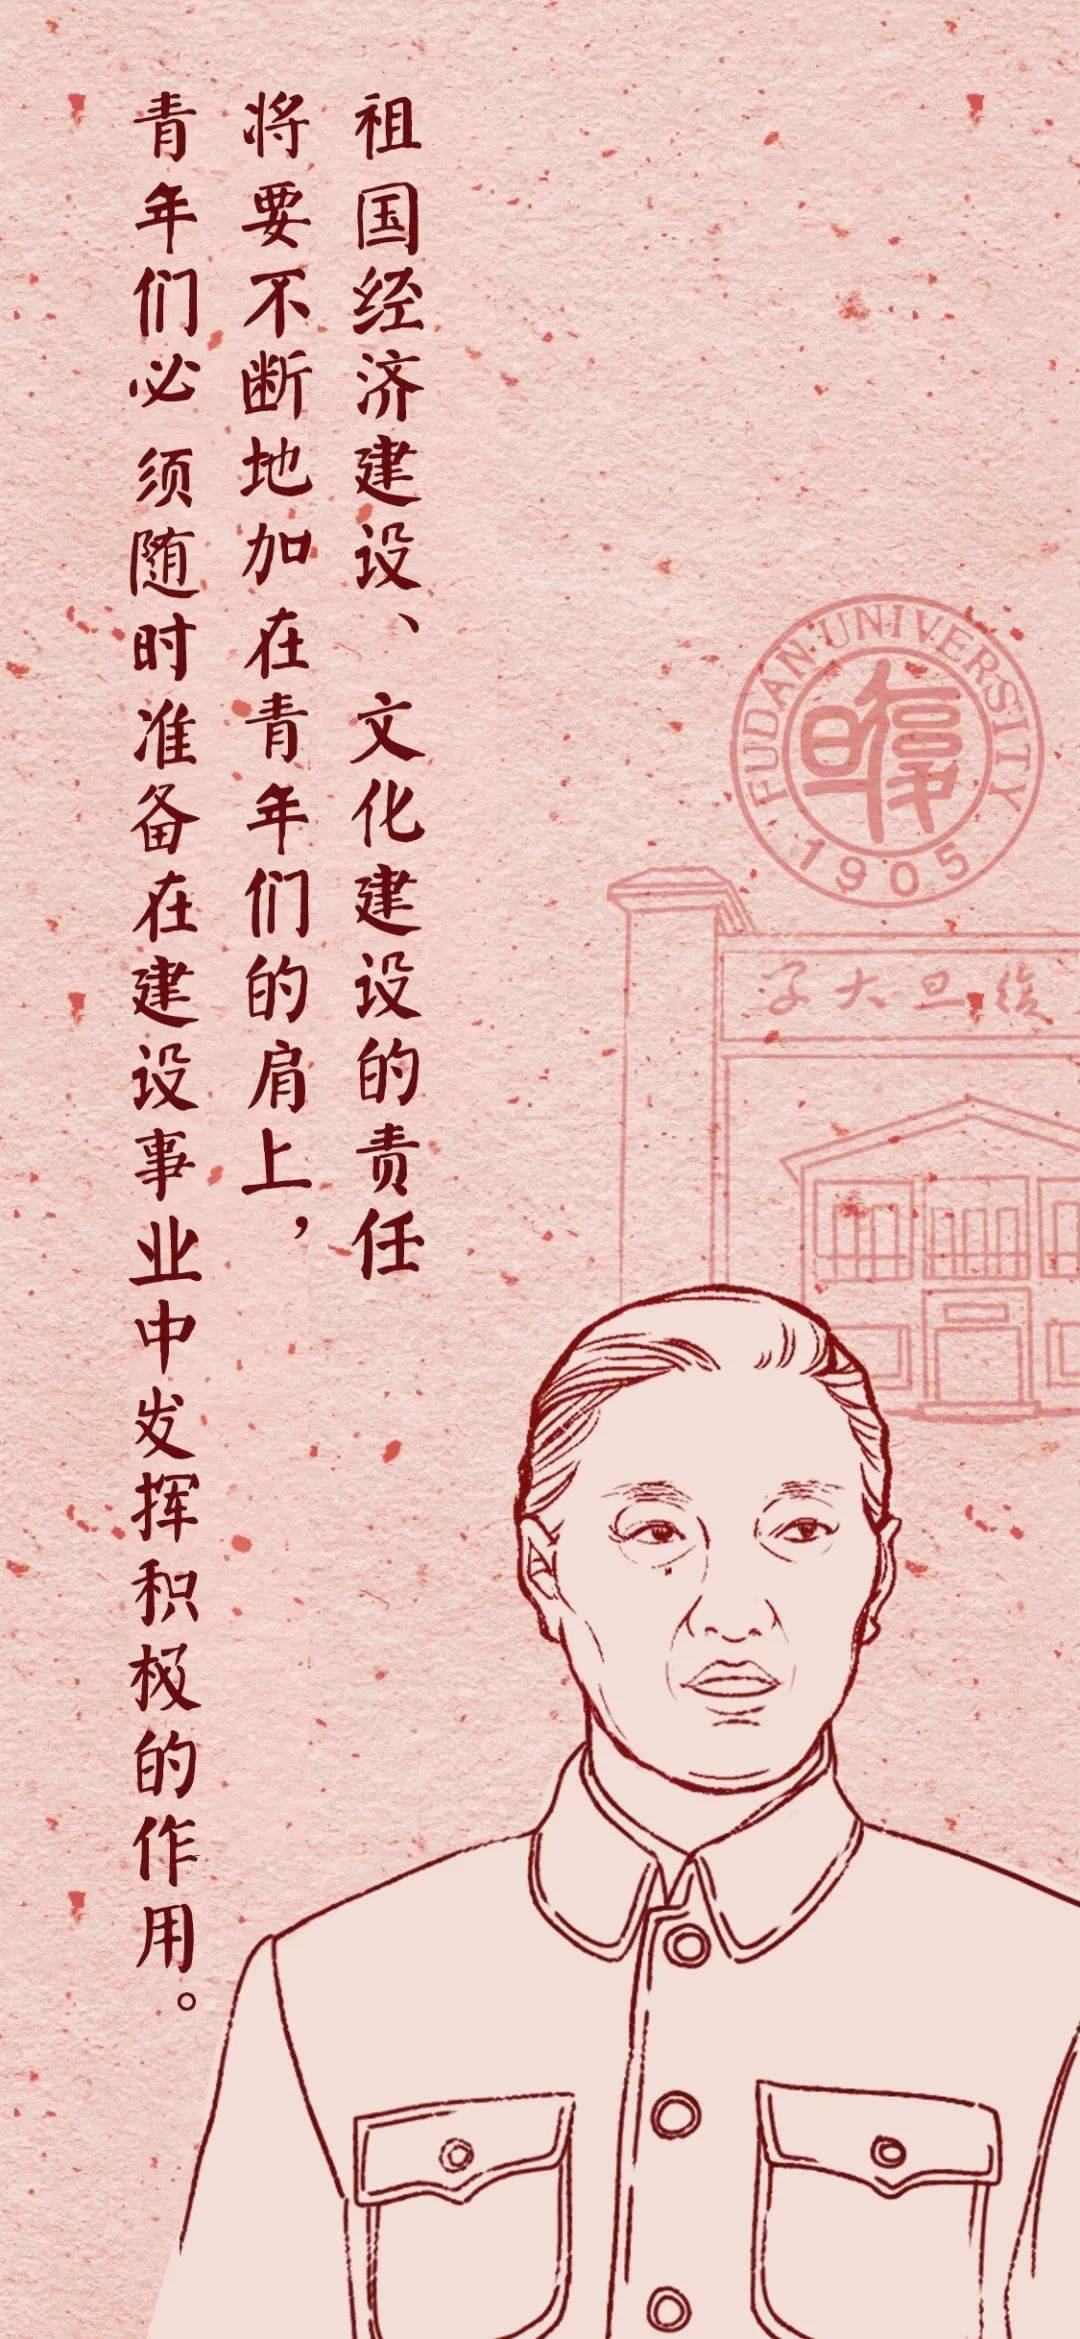 祖国经济建设、文化建设的责任
将要不断地加在青年们的肩上，
青年们必须随时准备在建设事业中发挥积极的作用。
FUDAN·UNIVERSITY
復旦
1905
复旦大学